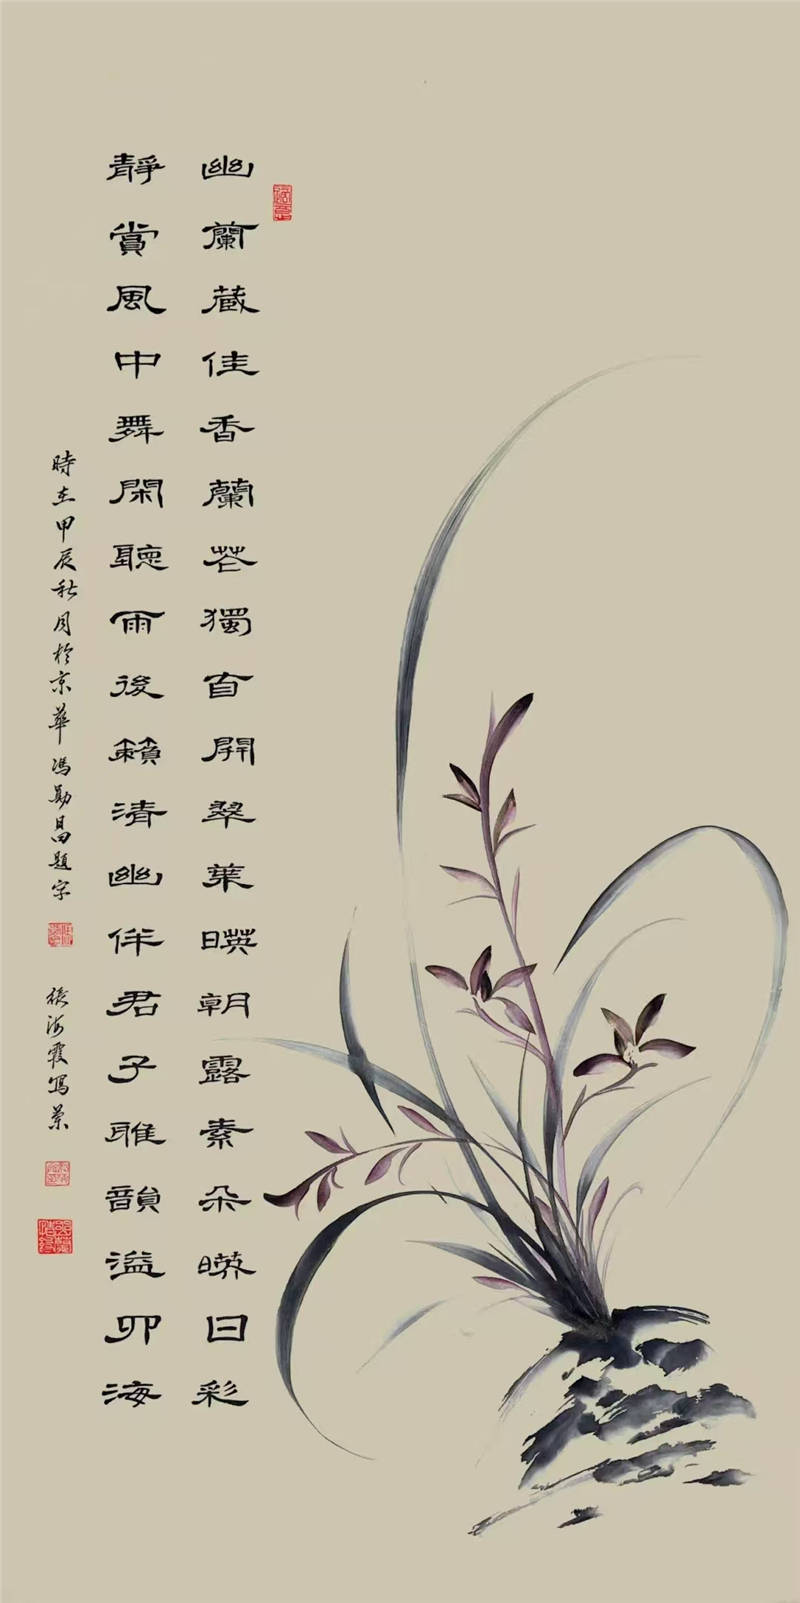 幽蘭蔵佳香蘭花獨自開翠葉暎朝露素朵暎日彩
靜賞風中舞閑聽雨後籟清幽伴君子雅韻溢四海
時在甲辰秋月於京華馮勛昌題字
張海霞寫蘭